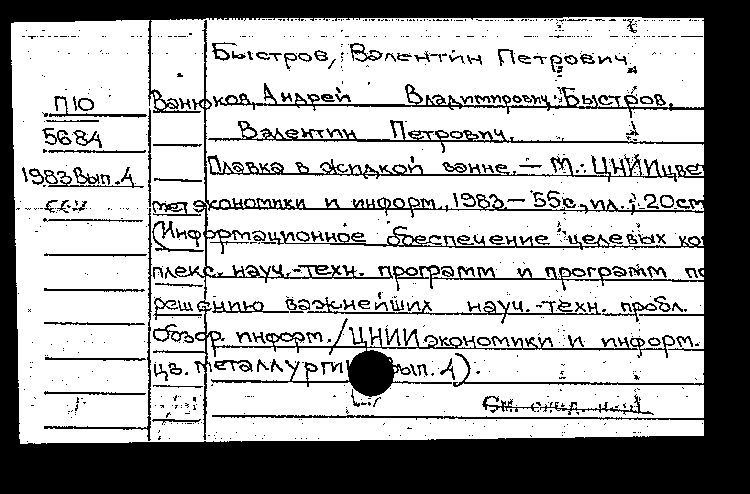 Быстров, Валентин Петрович
П10
Ванюков, Андрей Владимирович, Быстров,
5684
Валентин Петрович.
Плавка в жидкой ванне. — М.: ЦНИИцвет
1983 Вып. 4
мет экономики и информ., 1983 — 55с., ил.; 20см
(Информационное обеспечение целевых ком
плекс. науч.-техн. программ и программ по
решению важнейших науч.-техн. пробл.
Обзор. информ. / ЦНИИ экономики и информ.
цв. металлургии вып. 4).
См.